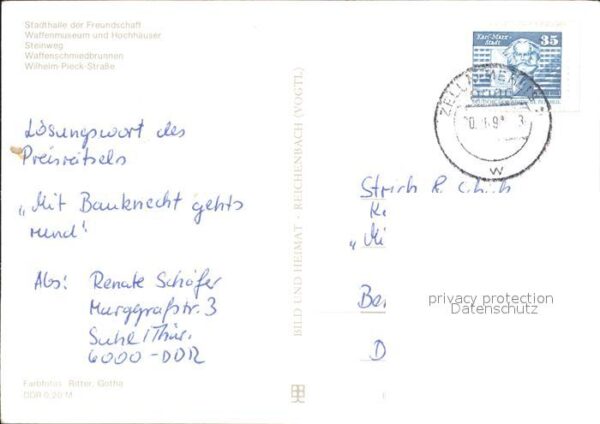 Stadthalle der Freundschaft
Waffenmuseum und Hochhäuser
Steinweg
Waffenschmiedbrunnen
Wilhelm-Pieck-Straße
Lösungswort des
Preisrätsels
"Mit Bauknecht gehts
rund"
Abs: Renate Schäfer
Murggrafstr. 3
Suhl/Thür.
6000-DDR
Farbfotos: Ritter, Gotha
DDR 0,20 M
BILD UND HEIMAT · REICHENBACH (VOGTL)
Karl-Marx-
Stadt
35
ZELLA-MEHLIS
W
"Mi
D
privacy protection
Datenschutz